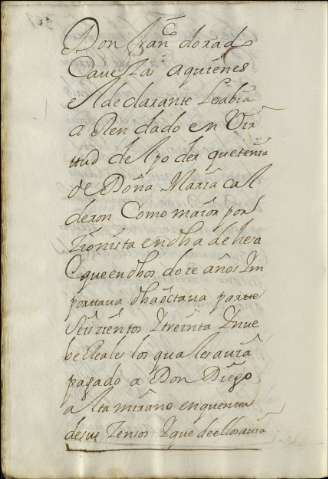 Don Juan dorad
Cavesa a quienes
el declarante les abia
a Rendado en Vir
ttud de Ppoder que tenia
de Doña Maria Call
deron Como maior por
zionista en dha dehesa
Que en dhos doze años Im
portava dha octava parte
Seiszientos Y treinta Y nue
be Reales los quales avia
pagado a Don Diego
altamirano en quenta
de sus Y que de ello avia